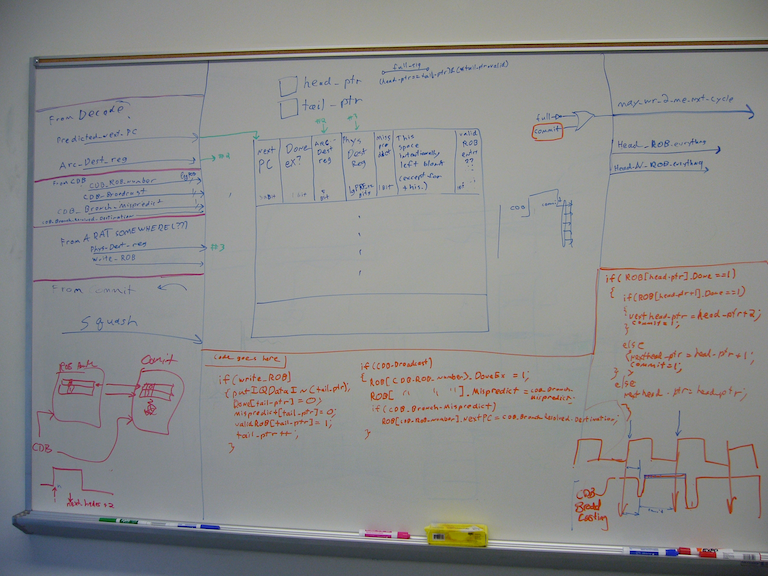 head_ptr
tail_ptr
full_sig
(head_ptr == tail_ptr) & (
From Decode:
Predicted_next_PC
Arc_Dest_reg
#2
From CDB
CDB_ROB_number
CDB_Broadcast
CDB_Branch_mispredict
CDB_Branch_Resolved_Destination
From A RAT SOMEWHERE(??)
Phys_Dest_reg
#3
Write_ROB
From commit
Squash
#2
#3
next PC
Done ex?
Arc_ Dest reg
Phys Dest Reg
This space intentionally left blank (except for this.)
valid ROB entry ??
1 bit
full
commit
may_wr_2_me_nxt_cycle
Head_ROB_everything
Head_N_ROB_everything
CDB
if (ROB[head_ptr].Done==1)
{ if(ROB[head_ptr+1].Done==1)
{next head_ptr=head_ptr+2;
commit=1;
}
else
{next head_ptr=head_ptr+1;
commit=1;
} }
else
next head_ptr=head_ptr;
code goes here
if(write_ROB)
Done[tail_ptr]=0;
mispredict[tail_ptr]=0;
valid ROB[tail_ptr]=1;
tail_ptr++;
}
if(CDB_Broadcast)
{ ROB[CDB_ROB_number].DoneEx = 1;
ROB[ " " "].Mispredict = CDB_Branch_
mispredict;
if(CDB_Branch_Mispredict)
ROB[CDB_ROB_number].nextPC=CDB_Branch Resolved_Destination;
}
Commit
CDB
CDB
Broad
Casting